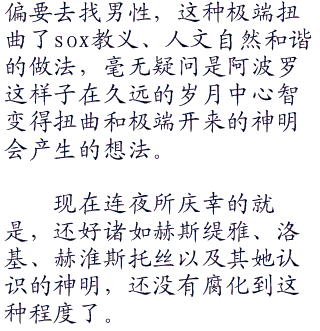 偏要去找男性，这种极端扭
曲了sox教义、人文自然和谐
的做法，毫无疑问是阿波罗
这样子在久远的岁月中心智
变得扭曲和极端开来的神明
会产生的想法。
现在连夜所庆幸的就
是，还好诸如赫斯缇雅、洛
基、赫淮斯托丝以及其她认
识的神明，还没有腐化到这
种程度了。